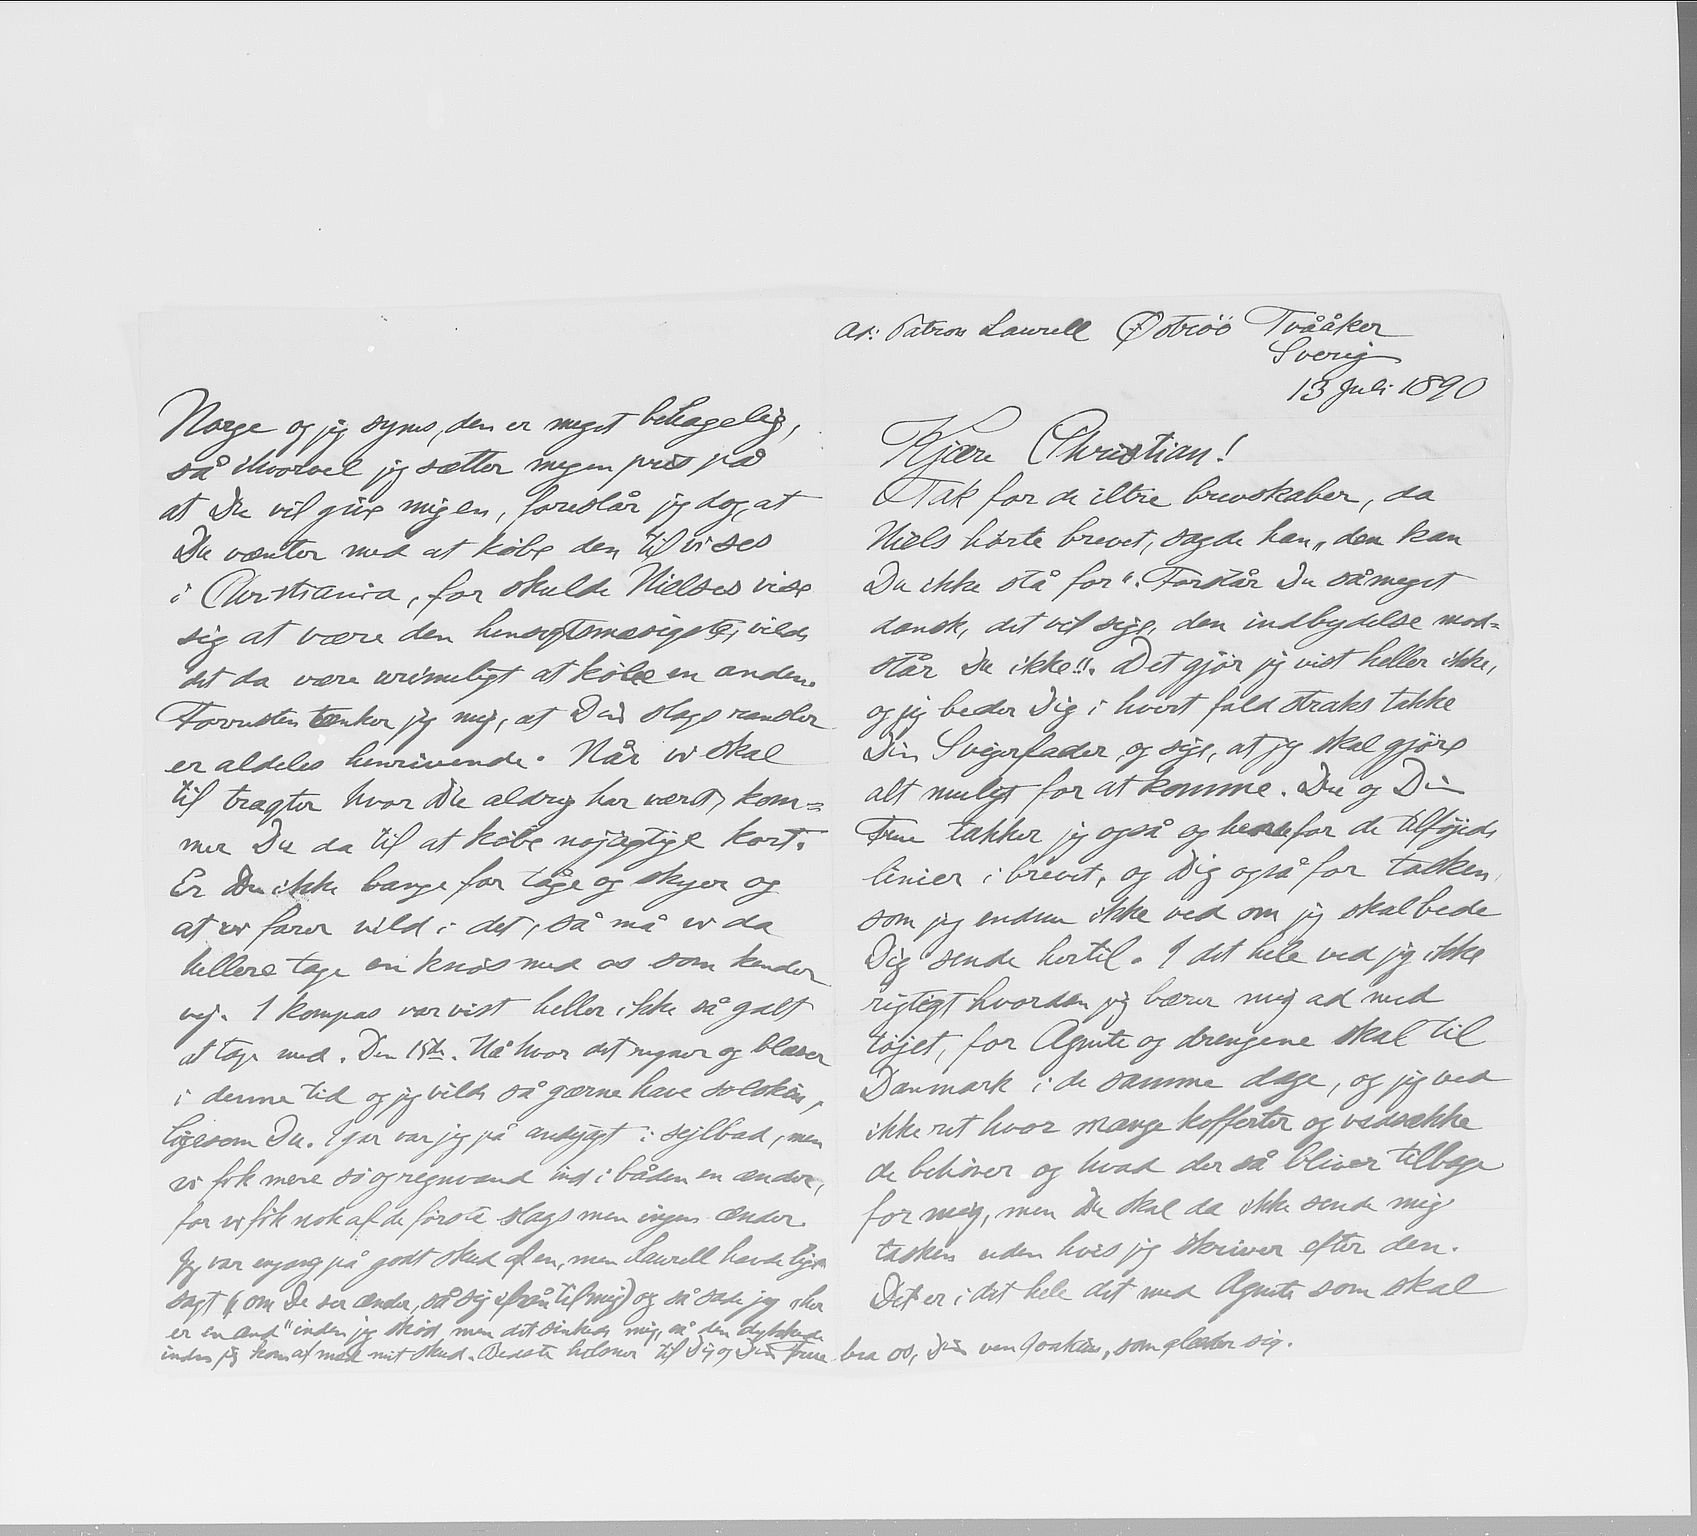 Ad: Patron Laurell Øströö Tvååker
Sverig
13 Juli 1890
Kjære Christian!
Tak for de iltre brevskaber, da
Niels hörte brevet, sagde han „den kan
Du ikke stå for". Forstår Du såmeget
dansk, det vil sige, den indbydelse mod=
står Du ikke!!. Det gjör jeg vist heller ikke,
og jeg beder Dig i hvert fald straks takke
Din Svigerfader og sige, at jeg skal gjöre
alt muligt for at komme. Du og Din
Frue takker jeg også og hende for de tilföjede
linier i brevet, og Dig også for tasken,
som jeg endnu ikke ved om jeg skal bede
Dig sende hertil. I det hele ved jeg ikke
rigtigt hvordan jeg bærer mig ad med
töjet, for Agnete og drengene skal til
Danmark i de samme dage, og jeg ved
ikke ret hvor mange kofferter og vadsække
de behöver og hvad der så bliver tilbage
for mig, men Du skal da ikke sende mig
tasken uden hvis jeg skriver efter den.
Det er i det hele det med Agnete som skal
Norge og jeg synes, den er meget behagelig,
så ihvorvel jeg sætter megen pris på
at Du vil give mig en, foreslår jeg dog, at
Du venter med at köbe den til vi ses
i Christiania, for skulde Nielses vise
sig at være den hensigtsmæsigste, vilde
det da være urimeligt at köbe en anden.
Forresten tænker jeg mig, at Din slags ransler
er aldeles henrivende. Når vi skal
til tragter hvor Du aldrig har været, kom=
mer Du da til at köbe nöjagtige kort.
Er Du ikke bange for tåge og skyer og
at vi farer vild i det, så må vi da
hellere tage en knös med os som kender
vej. 1 kompas var vist heller ikke så galt
at tage med. Den 15de. Nå hvor det regner og blæser
i denne tid og jeg vilde så gærne have solskin,
ligesom Du. Igår var jeg på andejagt i sejlbåd, men
vi fik mere sö og regnvand ind i båden en ænder,
for vi fik nok af de förste slags men ingen ænder.
Jeg var engang på godt skud af en, men Laurell havde ligesom
sagt (om De ser ænder, så sig ifrån til mig) og så sade jeg „her
er en and" inden jeg sköd, men det sinkede mig, så den dykkede
inden jeg kom af med mit skud. Bedste hilsner til Dig og Din Frue fra os, Din ven Joakim, som glæder sig.